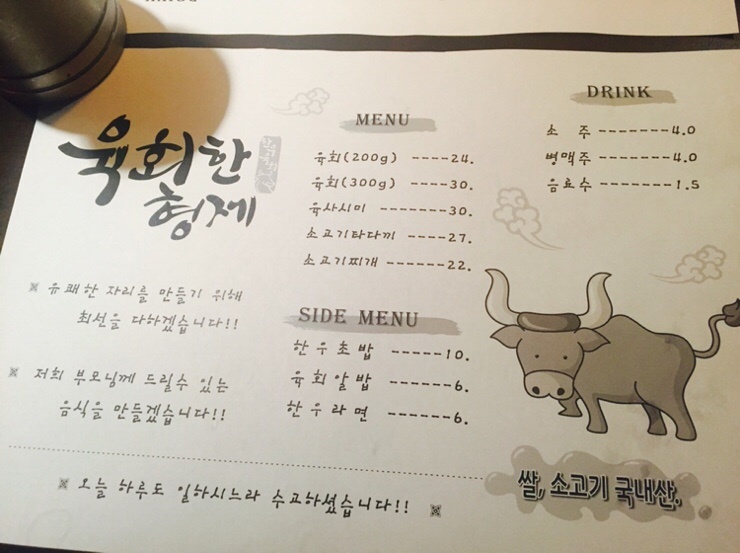 육회한
형제
MENU
육회(200g) ----24.
육회(300g) ----30.
육사시미 -------30.
소고기타다끼 ----27.
소고기찌개 ------22.
SIDE MENU
한우초밥 ------10.
육회알밥 -------6.
한우라면 -------6.
DRINK
소 주 -------4.0
병맥주 -------4.0
음료수 -------1.5
※ 유쾌한 자리를 만들기 위해
최선을 다하겠습니다!!
※ 저희 부모님께 드릴수 있는
음식을 만들겠습니다!!
※ 오늘 하루도 일하시느라 수고하셨습니다!! ※
쌀, 소고기 국내산.